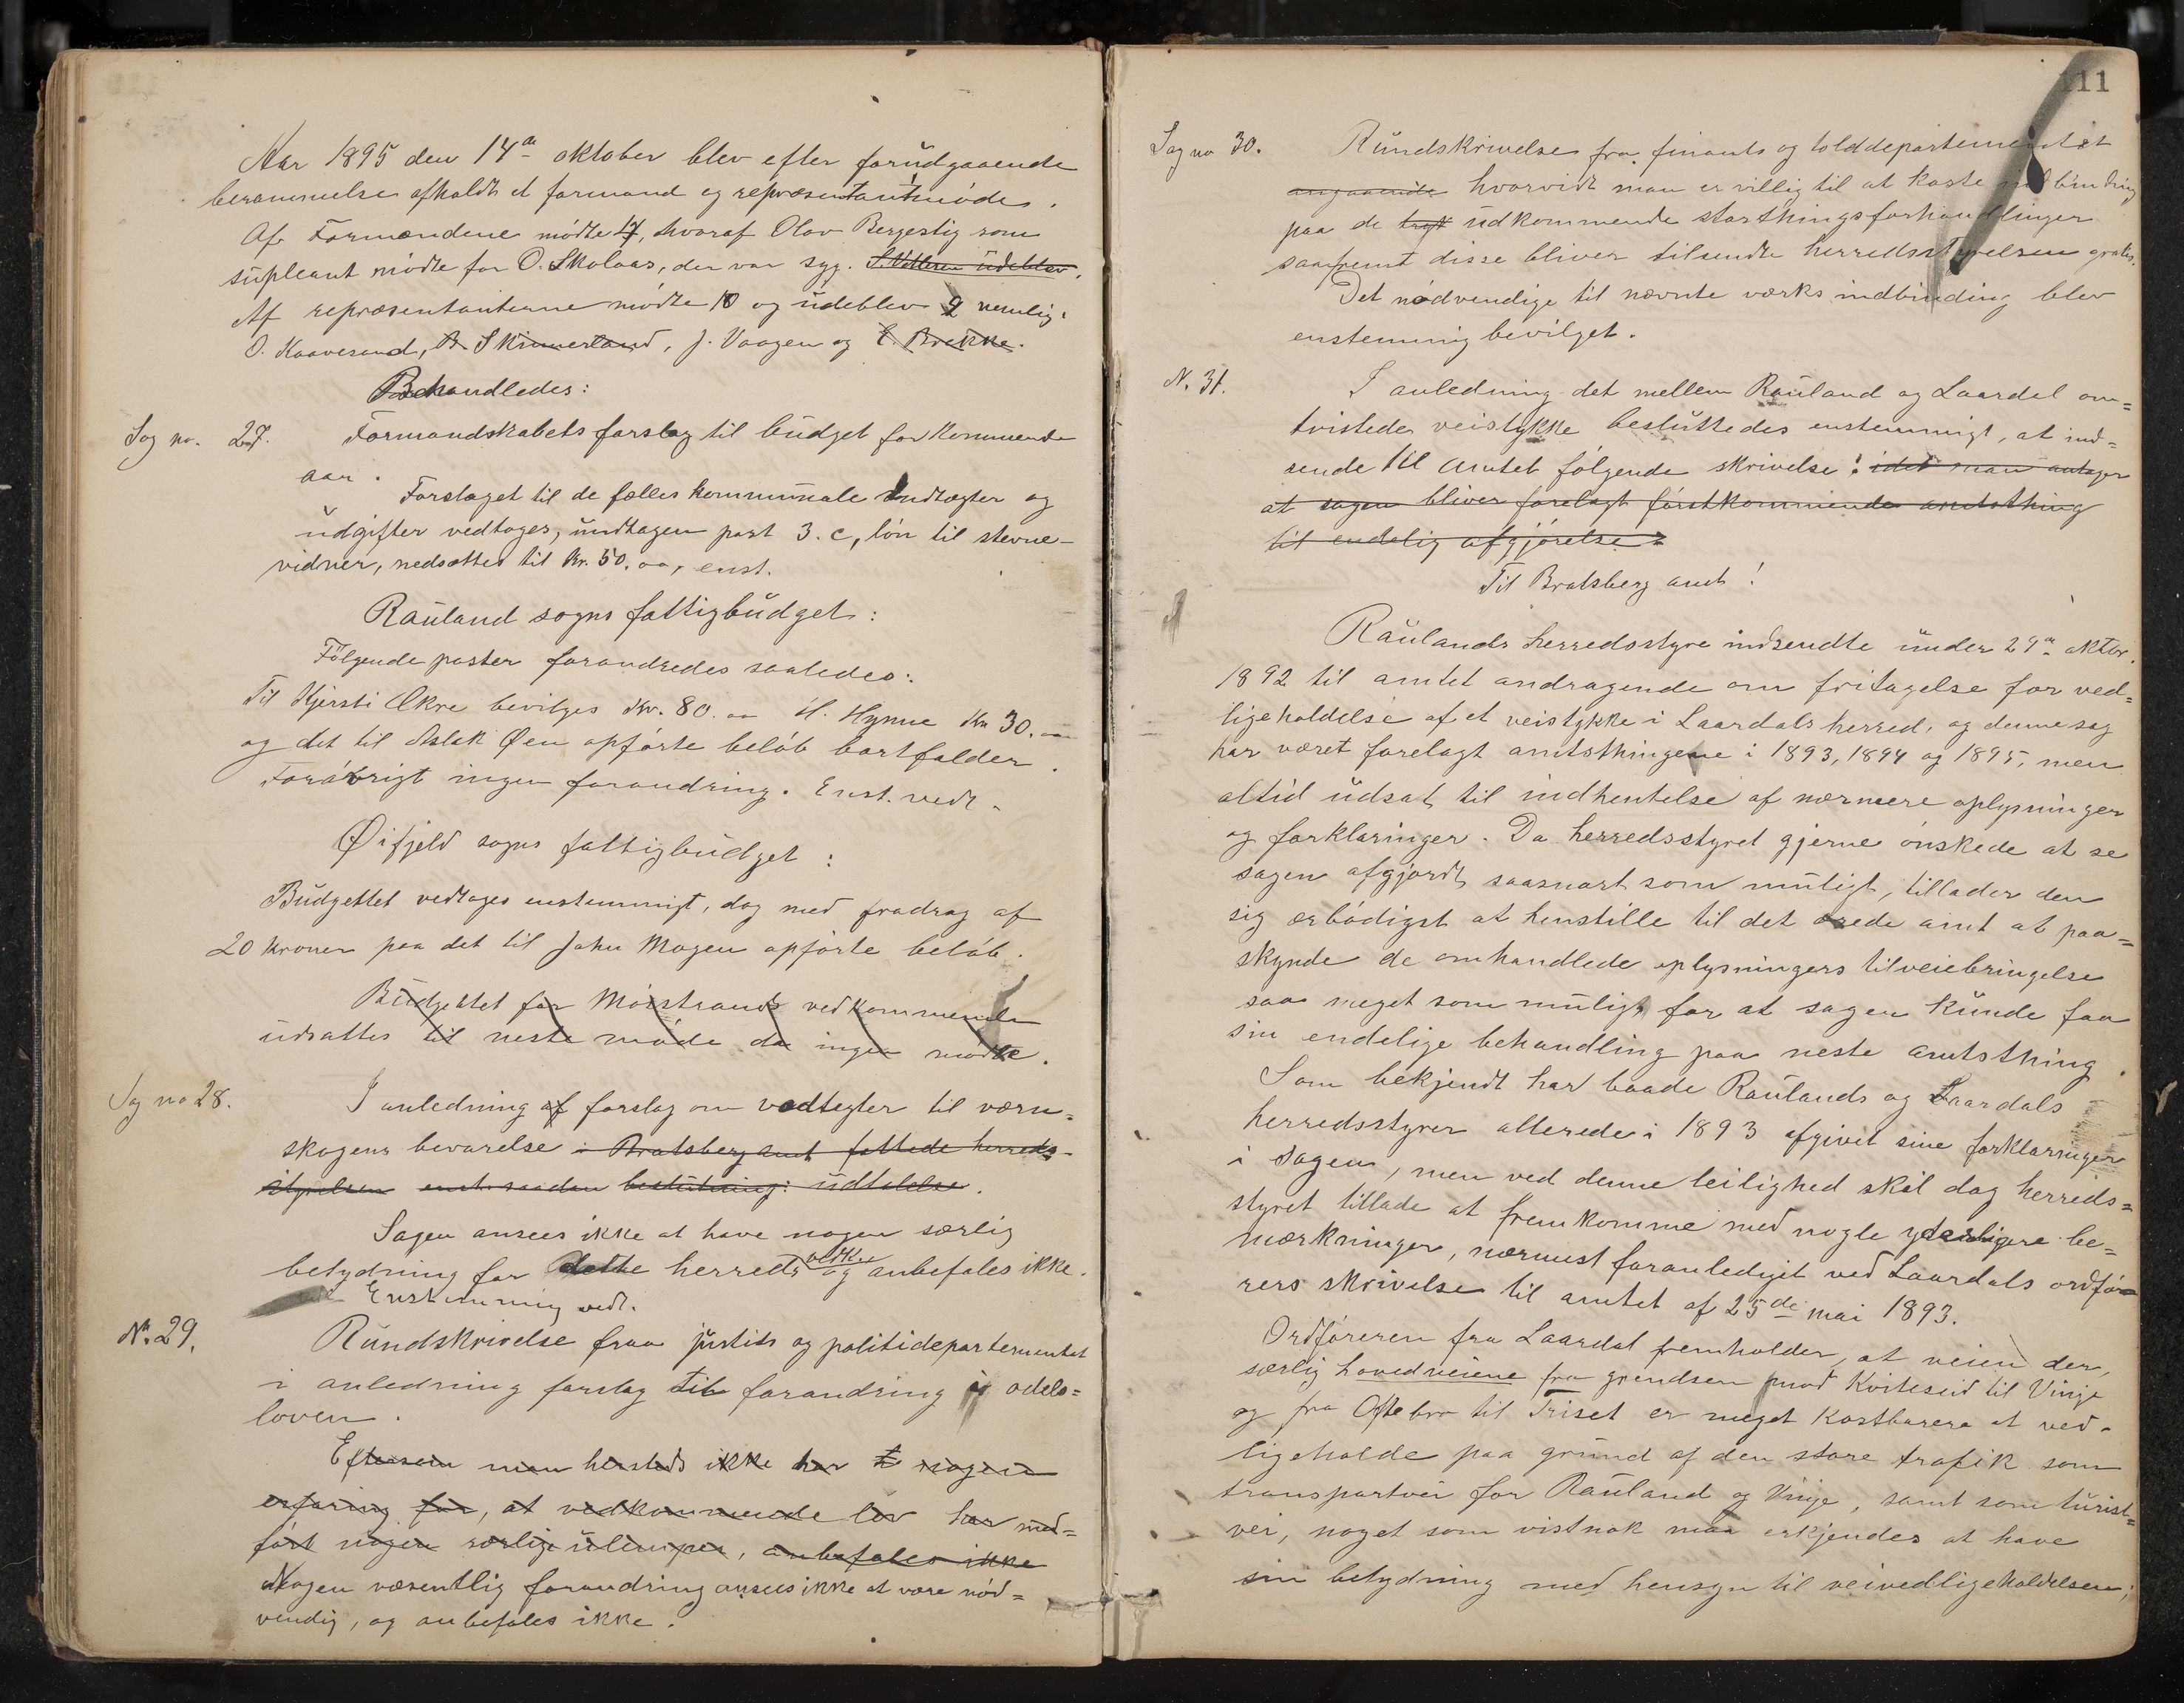 Aar 1895 den 14de oktober blev efter forudgaaende
berammelse afholdt et formand og repræsentantmøde.
Af Formændene mødte 4, hvoraf Olav Bergestig som
supleant mødte for O. Skolaas, der var syg. udeblev.
Af repræsentanterne mødte 10 og udeblev 2 nemlig:
O. Kaavesand, B. Skinnerland, J. Vaagen og Brekke.
Behandledes:
Sag no. 27. Formandskabets forslag til budget for kommende
aar.
Forslaget til de fælles kommunale Indtægter og
udgifter vedtages, undtagen post 3. c, løn til stevne-
vidner, nedsættes til Kr. 50.00, enst.
Rauland sogns fattigbudget:
Følgende poster forandredes saaledes:
Til Kjersti Økre bevilges Kr. 80.00 H. Hynne Kr 30.00
og det til Aslak Øen opførte beløb bortfalder.
Forøvrigt ingen forandring. Enst. vedt.
Øifjeld sogns fattigbudget:
Budgettet vedtages enstemmigt, dog med fradrag af
20 kroner paa det til John Mogen opførte beløb.
Budgettet for Møistrands vedkommende
udsattes til neste møde da ingen mødte.
Sag no 28. I anledning af forslag om vedtegter til værn=
skogens bevarelse i Bratsberg amt fattede herreds-
styrelsen enst. saadan beslutning: udtalelse.
Sagen ansees ikke at have nogen særlig
betydning for dette herreds vedk. og anbefales ikke.
Enstemmig vedt.
No. 29. Rundskrivelse fraa justits og politidepartementet
i anledning forslag til forandring i odels=
loven.
Eftersom man hersteds ikke har t nogen
erfaring for, at vedkommende lov har med=
ført nogen særlige ulemper, anbefales ikke
Nogen væsentlig forandring ansees ikke at være nød=
vendig, og anbefales ikke.
111
Sag no 30. Rundskrivelse fra finants og tolddepartementet
angaaende hvorvidt man er villig til at koste indbinding
paa de trykt udkommende storthingsforhandlinger
saafremt disse bliver tilsendte herredsstyrelsen gratis.
Det nødvendige til nævnte værks indbinding blev
enstemmig bevilget.
N. 31. I anledning det mellem Rauland og Laardal om=
tvistede veistykke besluttedes enstemmigt, at ind=
sende til amtet følgende skrivelse: idet man antager
at sagen bliver forelagt førstkommende amtsthing
til endelig afgjørelse.
Til Bratsberg amt!
Raulands herredsstyre indsendte under 29de oktbr.
1892 til amtet andragende om fritagelse for ved=
ligeholdelse af et veistykke i Laardals herred, og denne sag
har været forelagt amtsthingene i 1893, 1894 og 1895, men
altid udsat til indhentelse af nærmere oplysninger
og forklaringer. Da herredsstyret gjerne ønskede at se
sagen afgjordt saasnart som muligt, tillader den
sig ærbødigst at henstille til det ærede amt at paa=
skynde de omhandlede oplysningers tilveiebringelse
saa meget som muligt for at sagen kunde faa
sin endelige behandling paa neste amtsthing.
Som bekjendt har baade Raulands og Laardals
herredsstyrer allerede i 1893 afgivet sine forklaringer
i sagen, men ved denne leilighed skal dog herreds=
styret tillade at fremkomme med nogle yderligere be=
mærkninger, nærmest foranlediget ved Laardals ordfø=
rers skrivelse til amtet af 25de mai 1893.
Ordføreren fra Laardal fremholder, at veien der,
særlig hovedveiene fra grendsen mod Kviteseid til Vinje
og fra Ofte bro til Triset er meget kostbarere at ved=
ligeholde paa grund af den store trafik som
transportvei for Rauland og Vinje, samt som turist=
vei, noget som vistnok maa erkjendes at have
sin betydning med hensyn til veivedligeholdelsen;